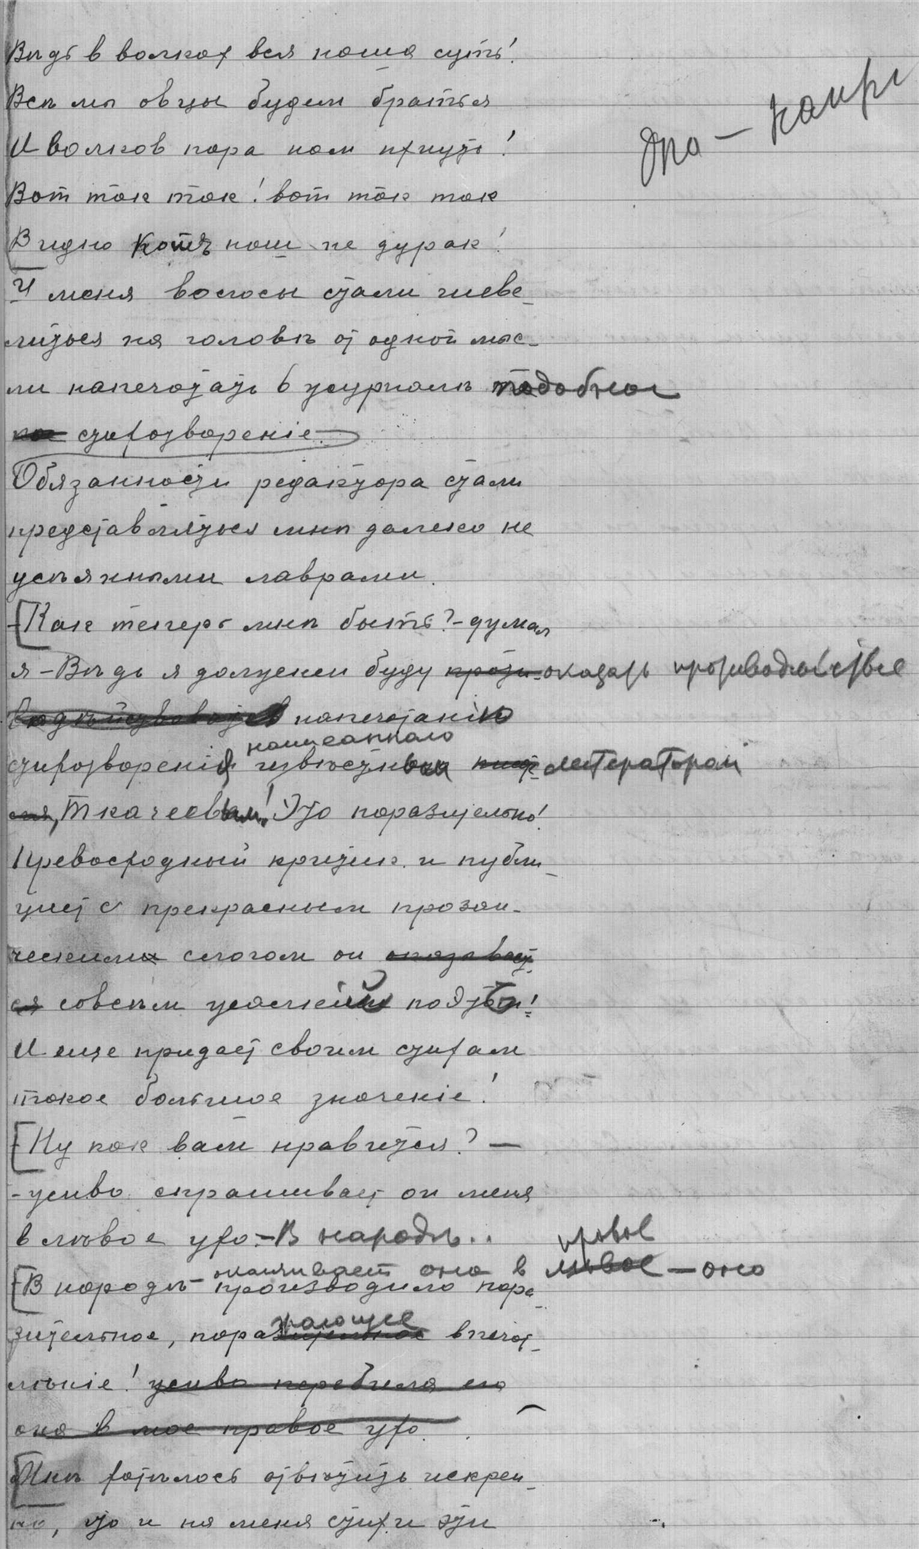 Вѣдь в волках вся наша суть!
Всѣ мы овцы будем братья
И волков пора нам пхнуть!
Вот так так! вот так так
Видно Котъ наш не дурак!
У меня волосы стали шеве-
литься на головѣ от одной мыс-
ли напечатать в журналѣ подобное
стихотвореніе.
Обязанности редактора стали
представляться мнѣ далеко не
усѣянными лаврами.
Как теперь мнѣ быть? - думал
я - Вѣдь я должен буду оказать противодѣйствіе
напечатанію
написаннаго
стихотворенія, извѣстным литератором
Ткачеевым! Это поразительно!
Превосходный критик и публи-
цист с прекрасным прозаи-
ческим слогом он
совсѣм
И еще придает своим стихам
такое большое значеніе!
Ну как вам нравится? —
- живо спрашивает он меня
в лѣвое ухо. - В народѣ..
правое
В народѣ - она в лѣвое — оно
производило пора-
зительное, поражающее впечат-
лѣніе! живо перебила его
она в мое правое ухо.
Мнѣ хотѣлось отвѣтить искрен-
но, что и на меня стихи эти